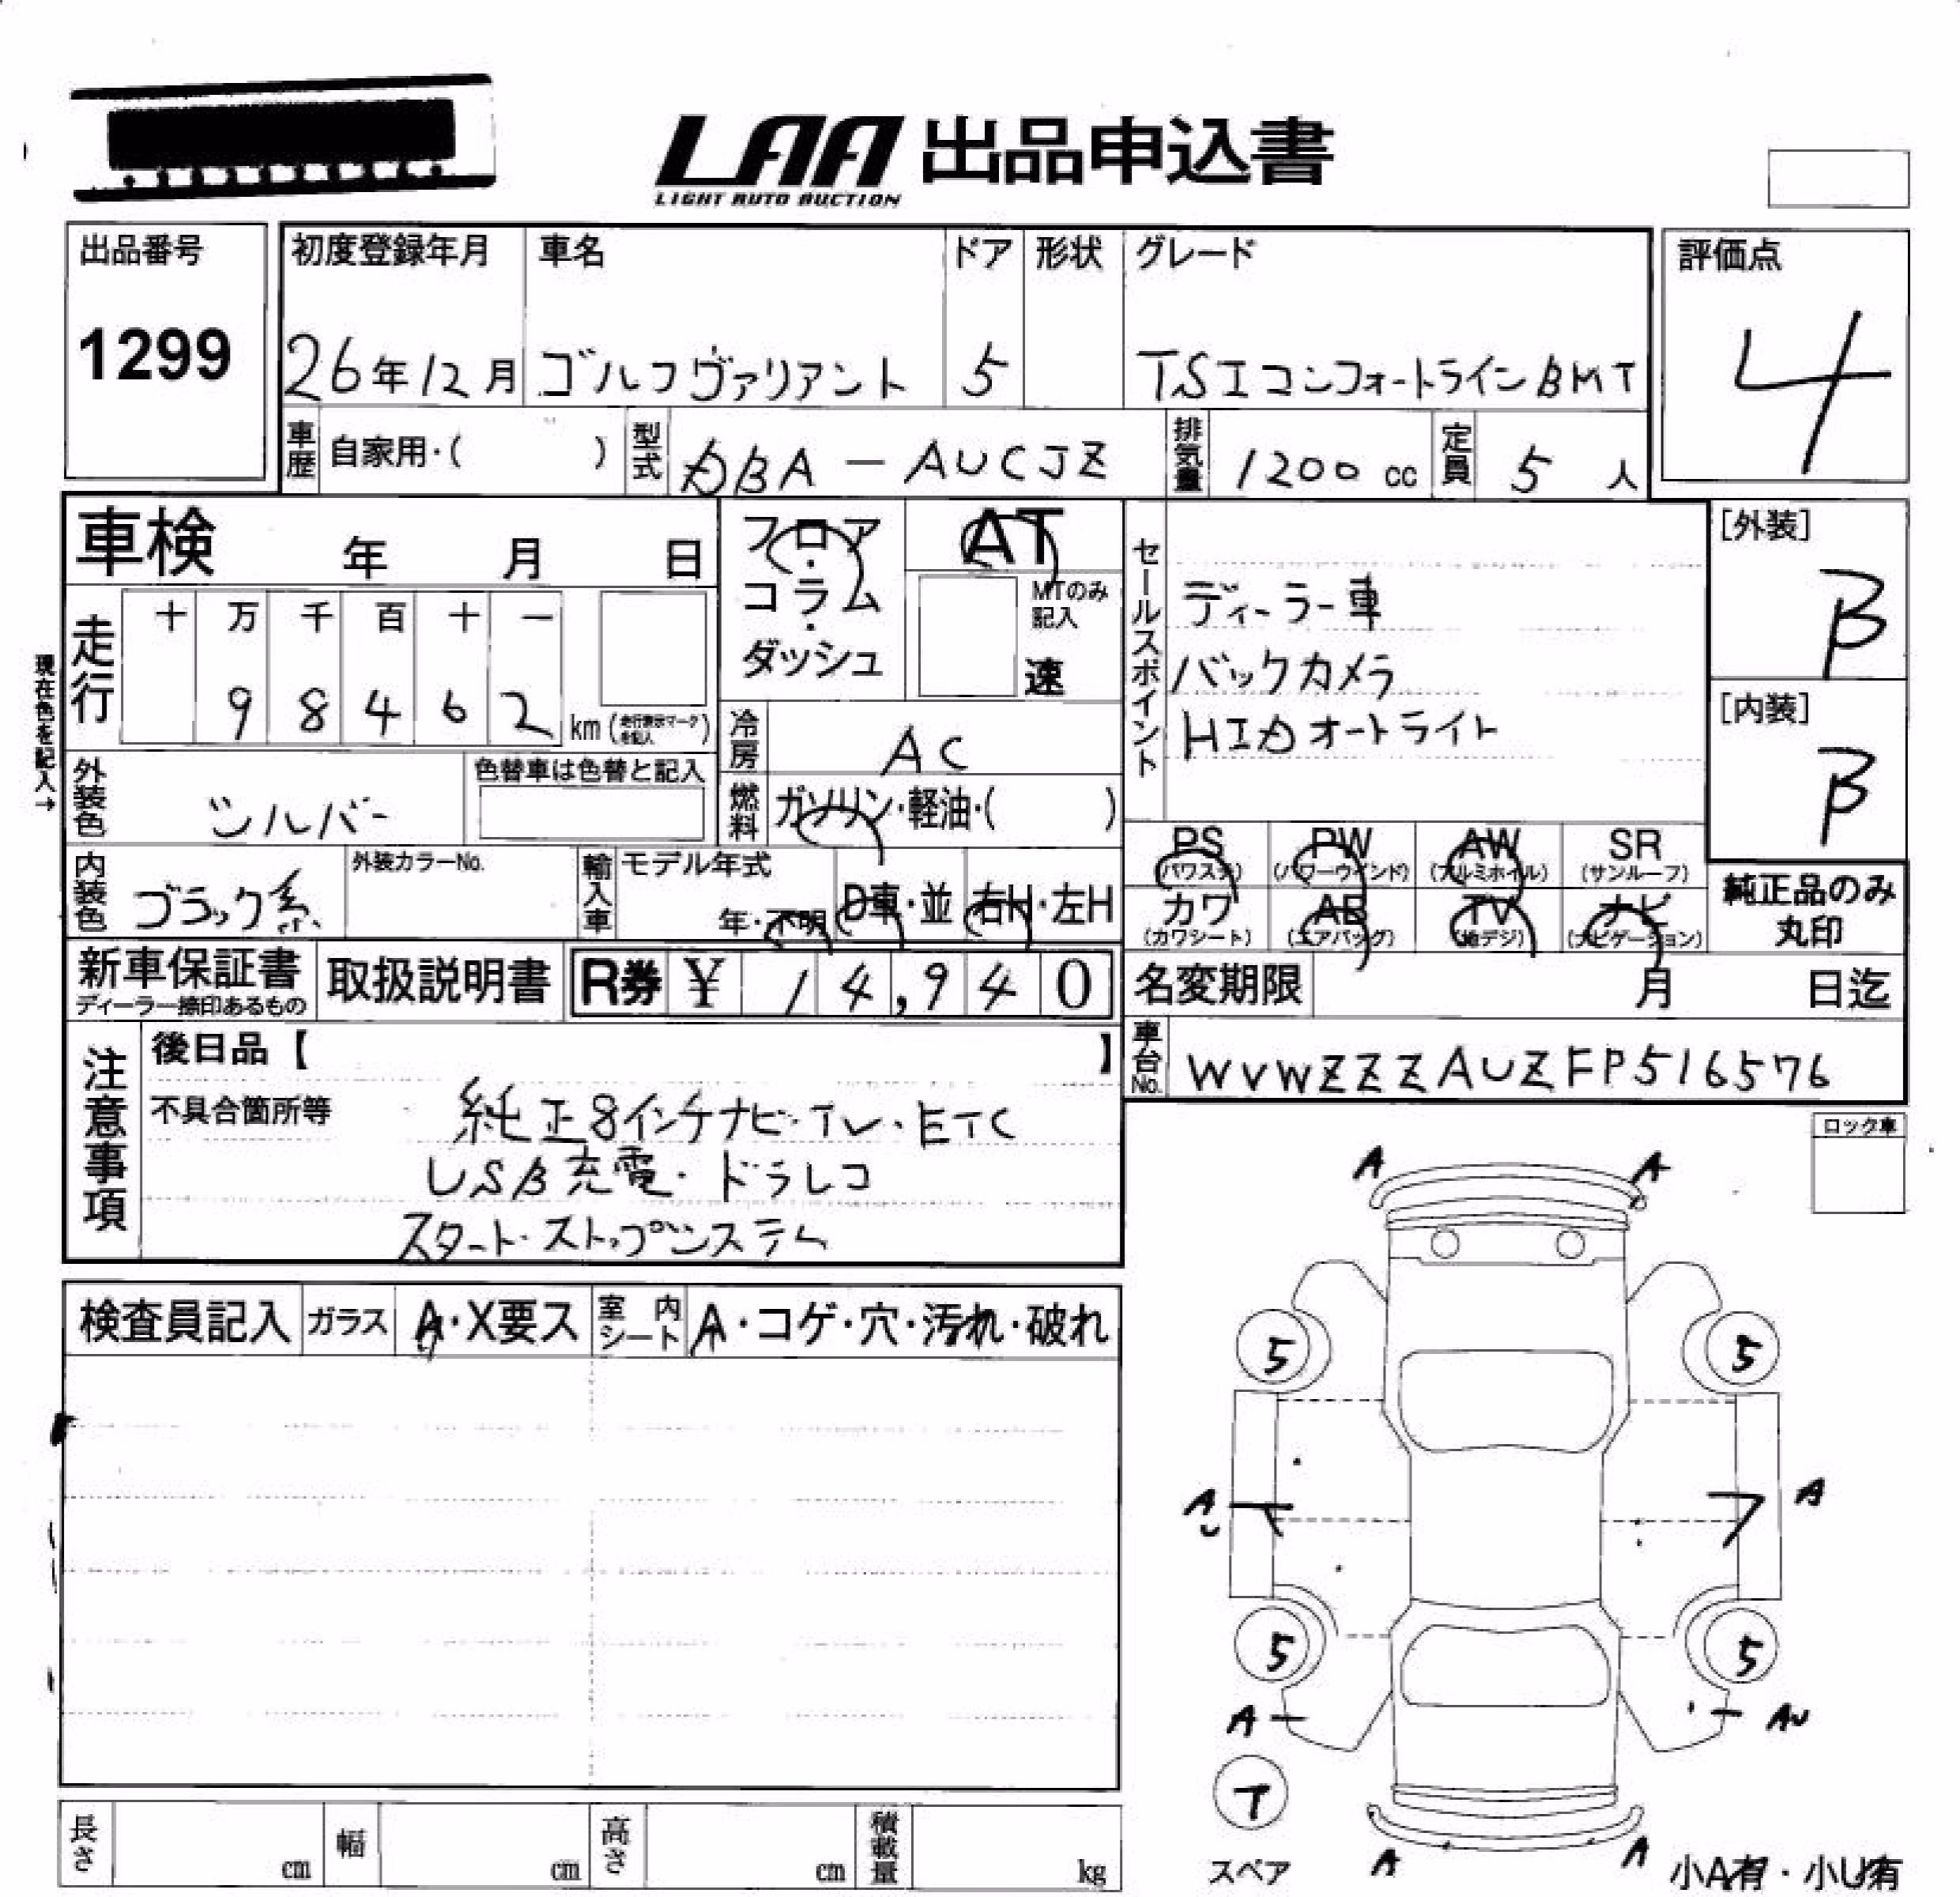 LAA 出品申込書
LIGHT AUTO AUCTION
出品番号
1299
初度登録年月 車名 ドア 形状 グレード
26年12月 ゴルフヴァリアント 5 TSIコンフォートラインBMT
評価点
4
車歴 自家用・( ) 型式 DBA-AUCJZ 排気量 1200cc 定員 5人
車検 年 月 日
フロア・コラム・ダッシュ
AT
MTのみ記入
速
セールスポイント
ディーラー車
バックカメラ
HIDオートライト
[外装]
B
[内装]
B
現在色を記入→
走行 十 万 千 百 十 一
9 8 4 6 2 km (走行表示マークを記入)
冷房 AC
外装色 シルバー 色替車は色替と記入
燃料 ガソリン・軽油・( )
内装色 ブラック系 外装カラーNo.
輸入車 モデル年式 年・不明 D車・並 右H・左H
PS (パワステ) PW (パワーウインド) AW (アルミホイル) SR (サンルーフ)
カワ (カワシート) AB (エアバッグ) TV (地デジ) ナビ (ナビゲーション)
純正品のみ丸印
新車保証書 ディーラー捺印あるもの 取扱説明書 R券 ¥ 14,940
名変期限 月 日迄
車台No. WVWZZZAUZFP516576
注意事項
後日品【 】
不具合箇所等 純正8インチナビ・TV・ETC
USB充電・ドラレコ
スタート・ストップシステム
ロック車
検査員記入 ガラス A・X要ス 室内シート A・コゲ・穴・汚れ・破れ
A A
5 5
A A
5 5
A AU
スペア
A A
小A有・小U有
長さ cm 幅 cm 高さ cm 積載量 kg